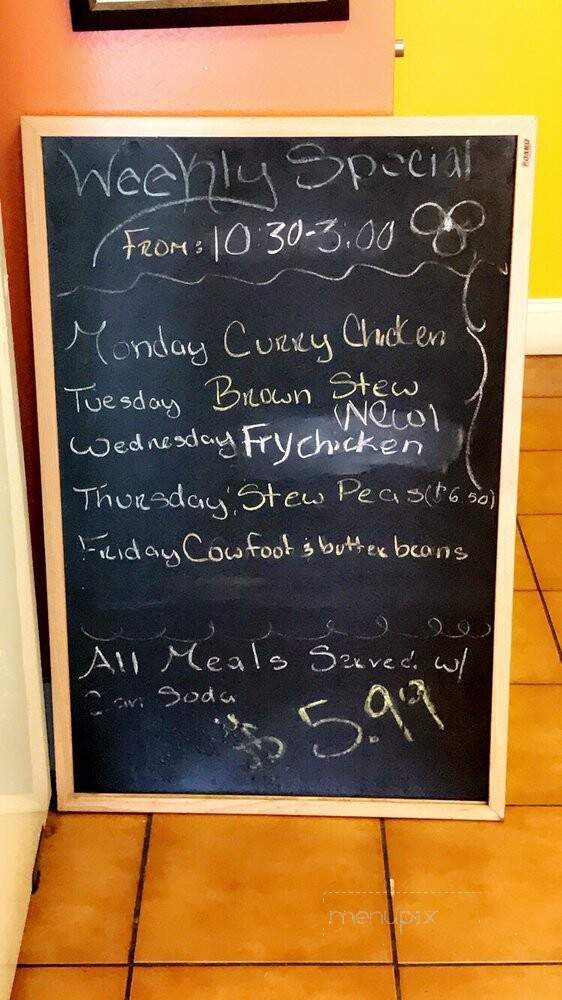 Weekly Special
From: 10:30-3:00
Monday Curry Chicken
Tuesday Brown Stew
(New)
Wednesday Fry chicken
Thursday: Stew Peas ($6.50)
Friday Cowfoot & butter beans
All Meals Served w/
Can Soda
$5.99
menupix